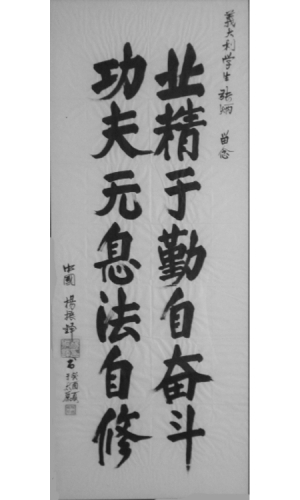 義大利学生 留念
业精于勤自奋斗
功夫元息法自修
中國 楊振鐸 书